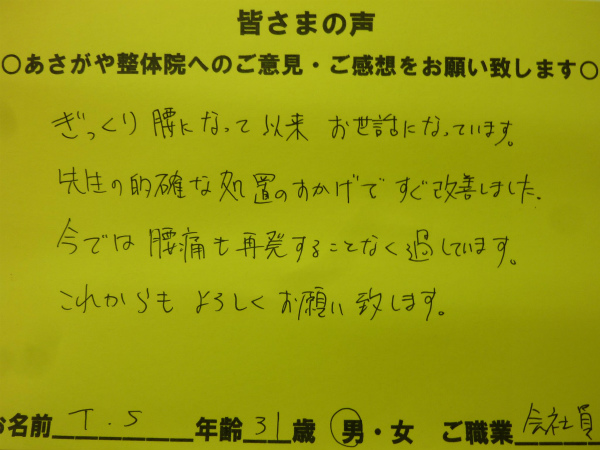 皆さまの声
○あさがや整体院へのご意見・ご感想をお願い致します○
ぎっくり腰になって以来 お世話になっています。
先生の的確な処置のおかげですぐ改善しました.
今では腰痛も再発することなく過しています。
これからもよろしくお願い致します。
お名前 T.S 年齢 31 歳 男・女 ご職業 会社員